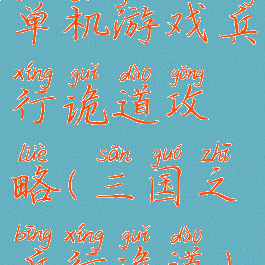 单机游戏兵
xíng guǐ dào gōng
行诡道攻
lüè sān guó zhī
略(三国之
bīng xíng guǐ dào
兵行诡道)